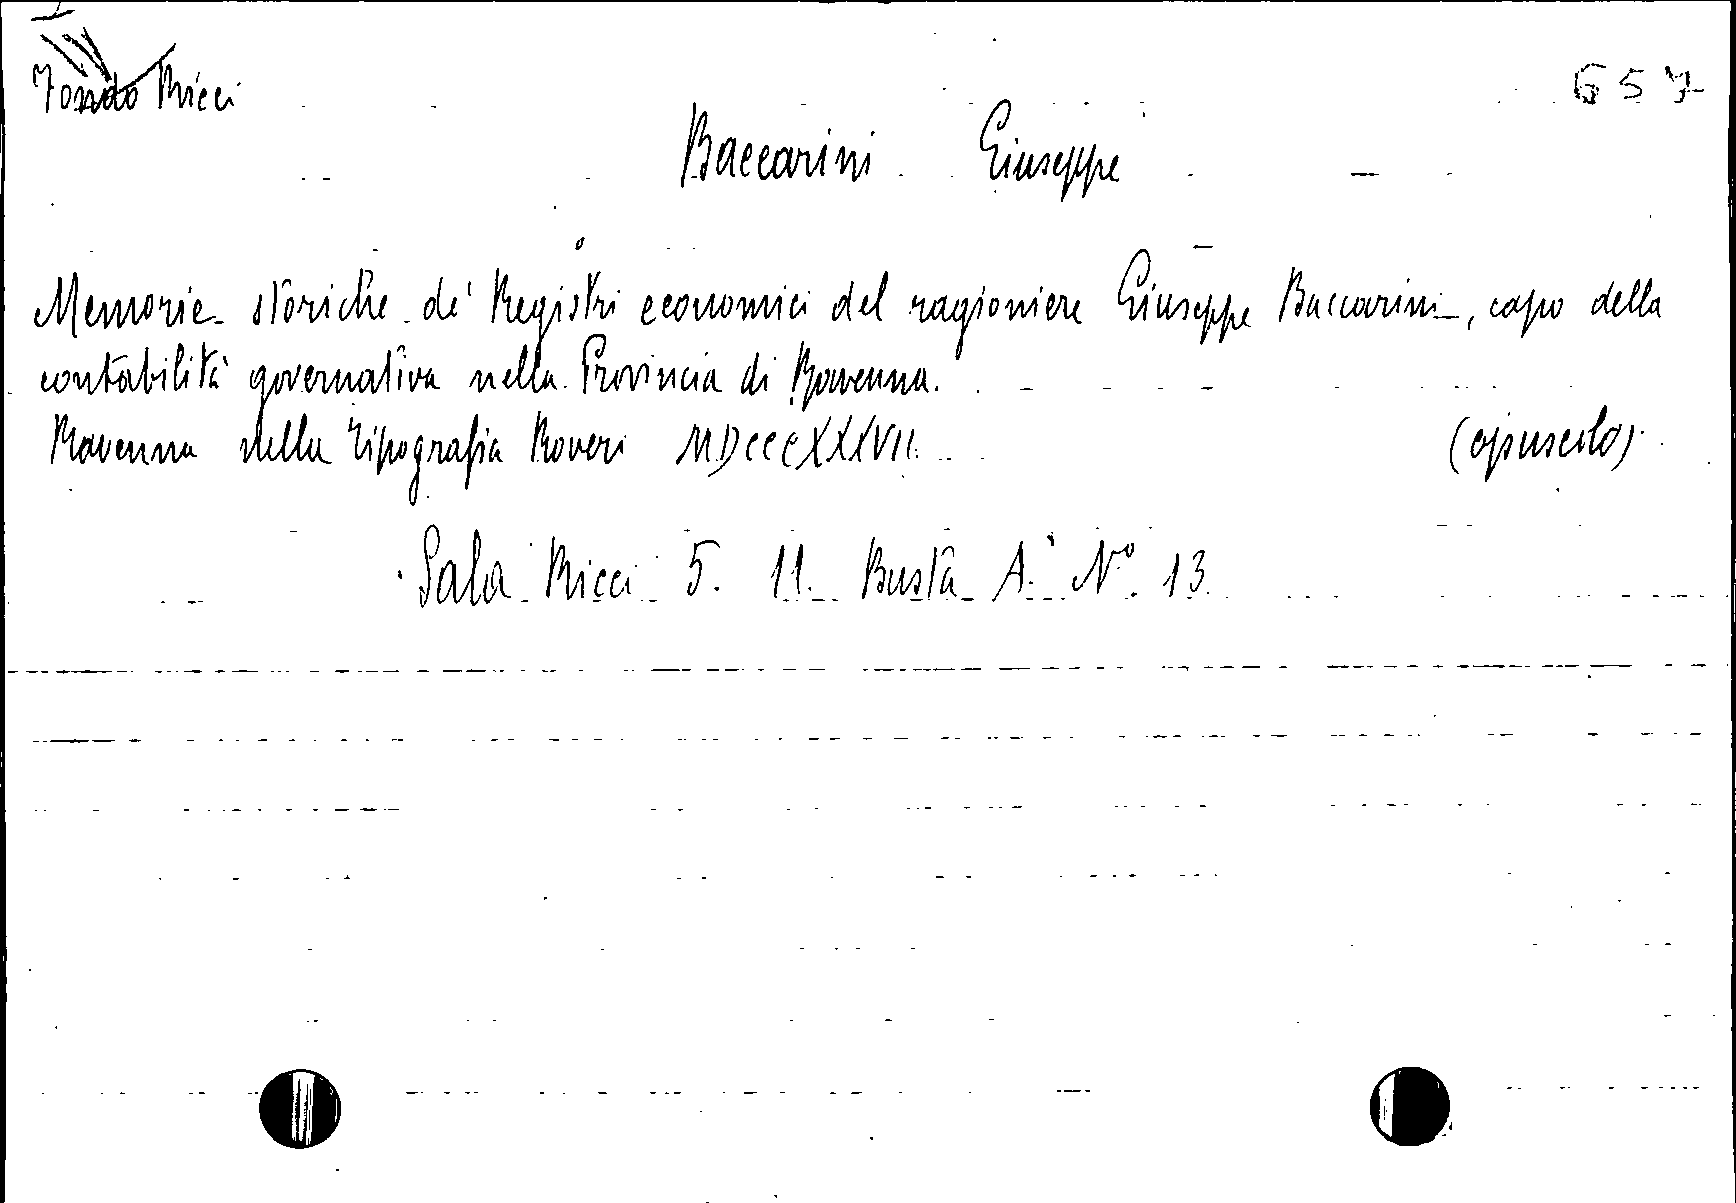 Fondo Ricci
657
Baccarini Giuseppe
Memorie storiche de' Registri economici del ragioniere Giuseppe Baccarini, capo della
contabilità governativa nella Provincia di Ravenna.
Ravenna nella Tipografia Roveri MDCCCXXXVII.
(opuscolo)
Sala Ricci 5. 11. Busta A. N° 13